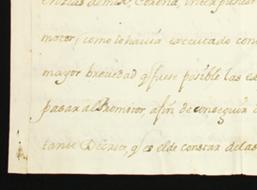 motor, como lo havia executado con
mayor brevedad q fuese posible las es
pasar al Promotor, afin de conseguir
tante Decreto, q es el de constar de las